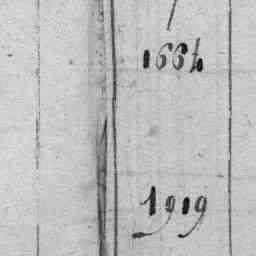 1664
1919